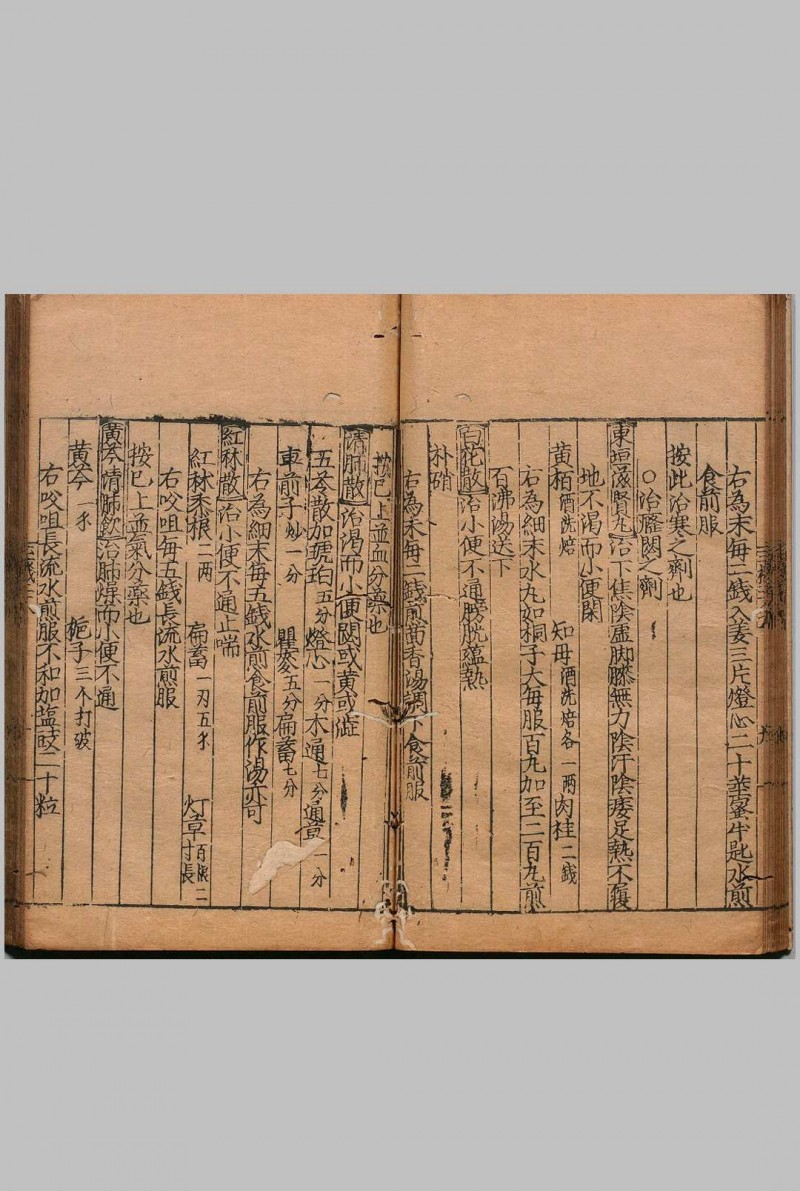 右為末每二錢入姜三片燈心二十莖蜜半匙水煎
食前服
按此治寒之劑也
○治癃閉之劑
東垣滋腎丸治下焦陰虛脚膝無力陰汗陰痿足熱不履
地不渴而小便閉
黄栢酒洗焙 知母酒洗焙各一兩 肉桂二錢
右為細末水丸如桐子大每服百丸加至二百丸煎
百沸湯送下
白花散治小便不通膀胱蘊熱
朴硝
右為末每二錢煎茴香湯調下食前服
按已上並血分藥也
清肺散治渴而小便閉或黄或澁
五苓散加琥珀五分 燈心一分 木通七分 通草一分
車前子炒一分 瞿麥五分 扁蓄七分
右為細末每五錢水煎食前服作湯亦可
紅秫散治小便不通上喘
紅秫黍根二兩 扁蓄一刃五禾 灯草百根二寸長
右㕮咀每五錢長流水煎服
按已上並氣分藥也
黄芩清肺飲治肺燥而小便不通
黄芩一禾 梔子三个打破
右㕮咀長流水煎服不和加塩豉二十粒